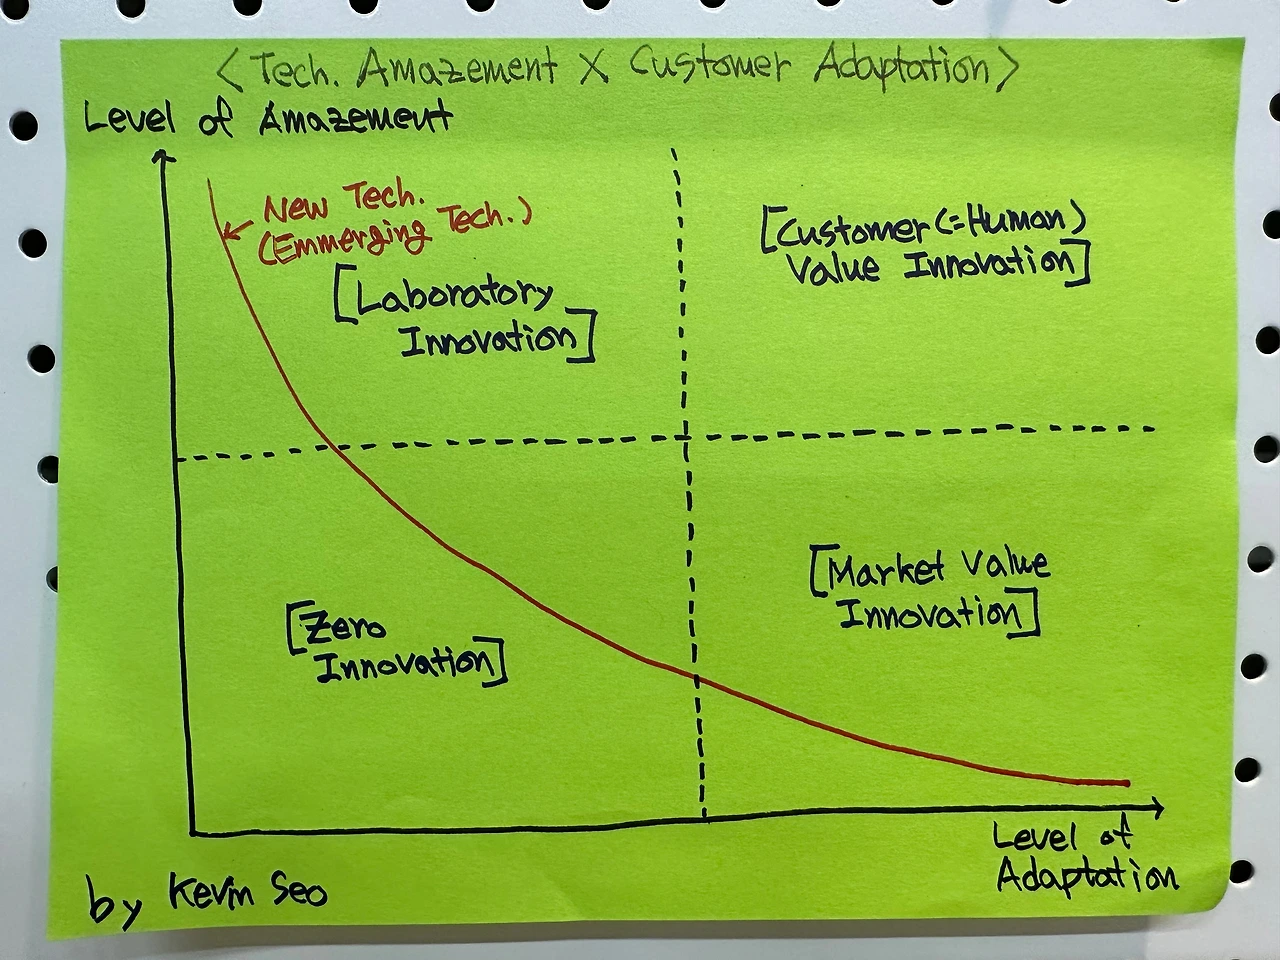 <Tech. Amazement X Customer Adaptation>
Level of Amazement
New Tech.
(Emmerging Tech.)
[Laboratory
Innovation]
[Customer(=Human)
Value Innovation]
[Zero
Innovation]
[Market Value
Innovation]
Level of
Adaptation
by Kevin Seo